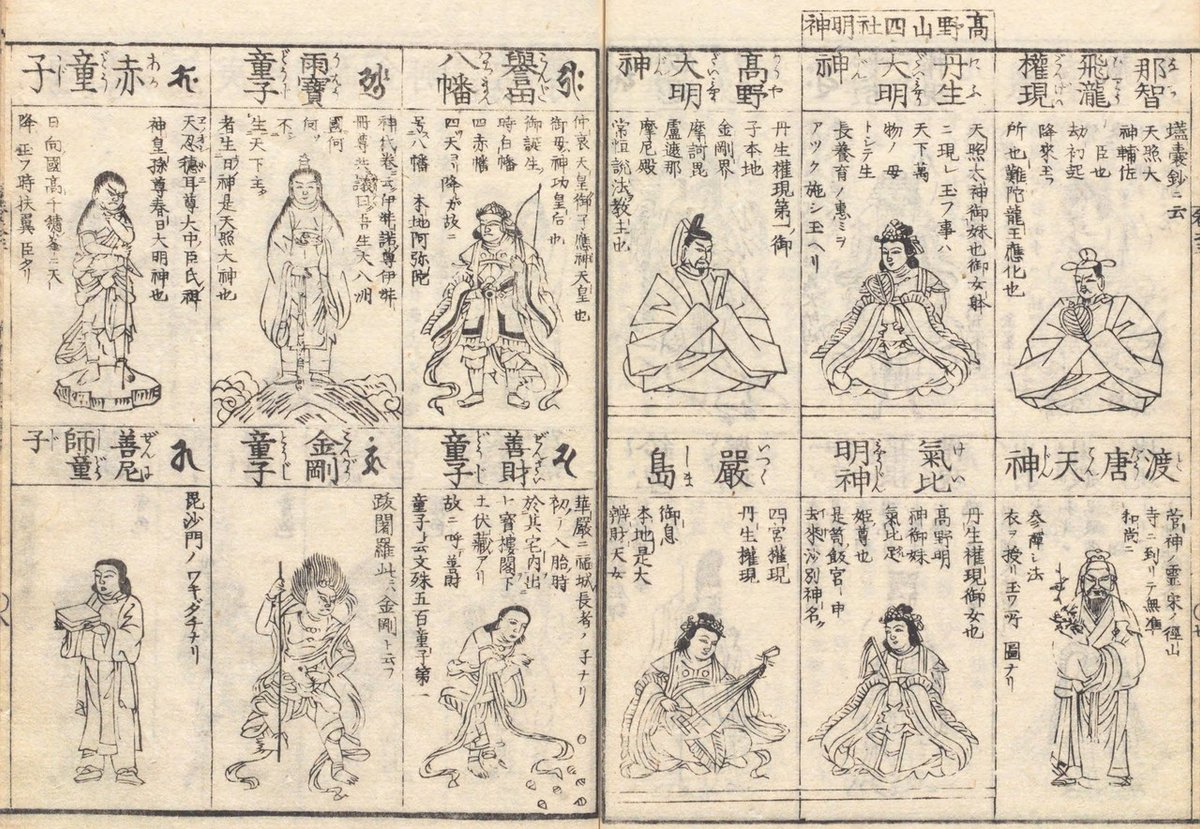 高野山四社明神
那智飛瀧權現
壒囊鈔ニ云
天照大
神輔佐
ノ臣也
劫初起
降來玉フ
所也難陀龍王應化也
丹生大明神
天照太神御妹也御女躰
ニ現レ玉フ事ハ
天下萬
物ノ母
トシテ生
長養育ノ惠ミヲ
アツク施シ玉ヘリ
高野大明神
丹生權現第一御
子本地
金剛界
摩訶毘
盧遮那
摩尼殿
常恒説法教主也
渡唐天神
菅神ノ靈宋ノ徑山
寺ニ到リテ無準
和尚ニ
參禪シ法
衣ヲ授リ玉ワ所ノ圖ナリ
氣比明神
丹生權現御女也
髙野明
神御妹
氣比
姬尊也
是筍飯宮ト申
去來沙別神名
嚴島
四宮權現
丹生權現
御息
本地是大
辨財天女
譽田八幡
仲哀天皇御子應神天皇也
御母神功皇后也
御誕生ノ
時白幡
四赤幡
四天ヨリ降ル故ニ
号八幡 本地阿弥陀
雨寶童子
神代卷云伊弉諾尊伊弉
冊尊共議曰吾生大八洲
國何
何
不
生天下主
者生日神是天照大神也
赤童子
天忍德耳尊大中臣氏神
神皇孫尊春日大明神也
日向國高千穗峯ニ天
降玉フ時扶翼臣タリ
善財童子
華嚴ニ福城長者ノ子ナリ
初メ入胎時
於其宅内出
ト寶樓閣下
土伏藏アリ
故ニ呼善財
童子ト云文殊五百童子第一
金剛童子
跋闍羅此ニ金剛ト云フ
善尼師童子
毘沙門ノワキダチナリ